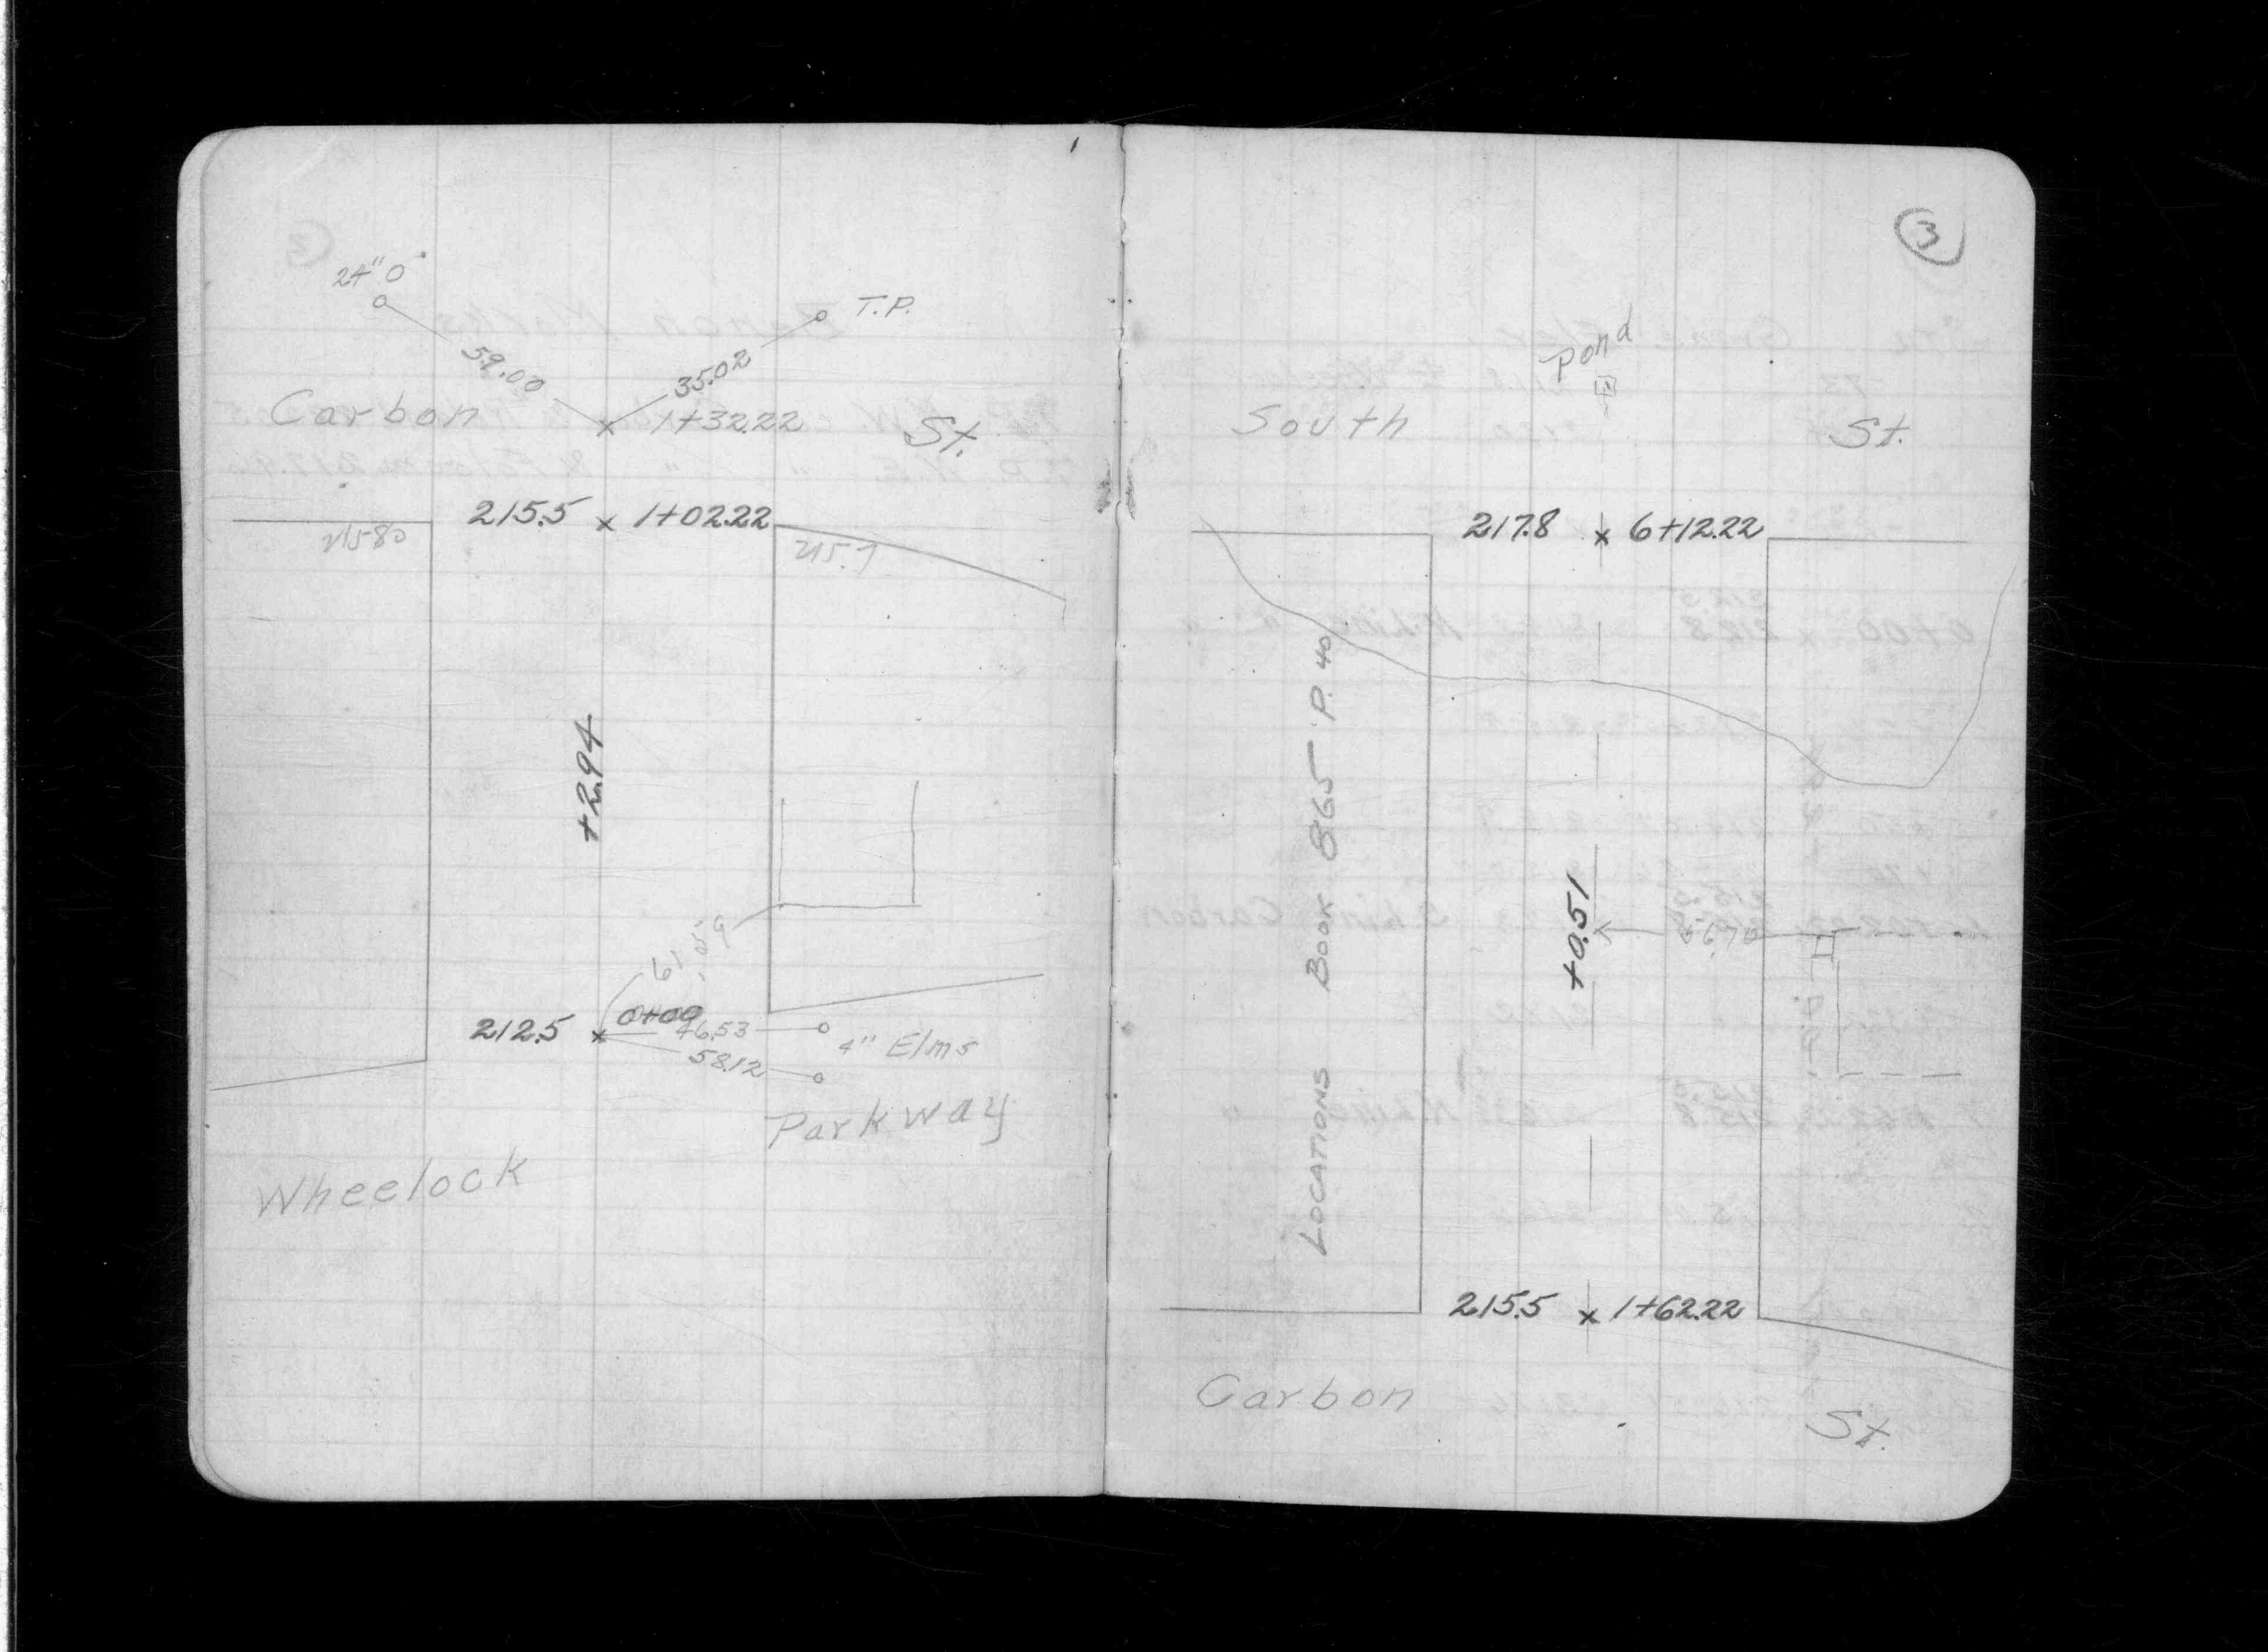 24" O
T.P.
59.00
35.02
Carbon
1+32.22
St.
215.5 x 1+02.22
215.80
215.7
+2.94
61.59
212.5 x 0+00
46.53
4" Elms
58.12
Parkway
Wheelock
3
Pond
South
St.
217.8 x 6+12.22
LOCATIONS BOOK 865 P. 40
+0.51
215.5 x 1+62.22
Carbon
St.